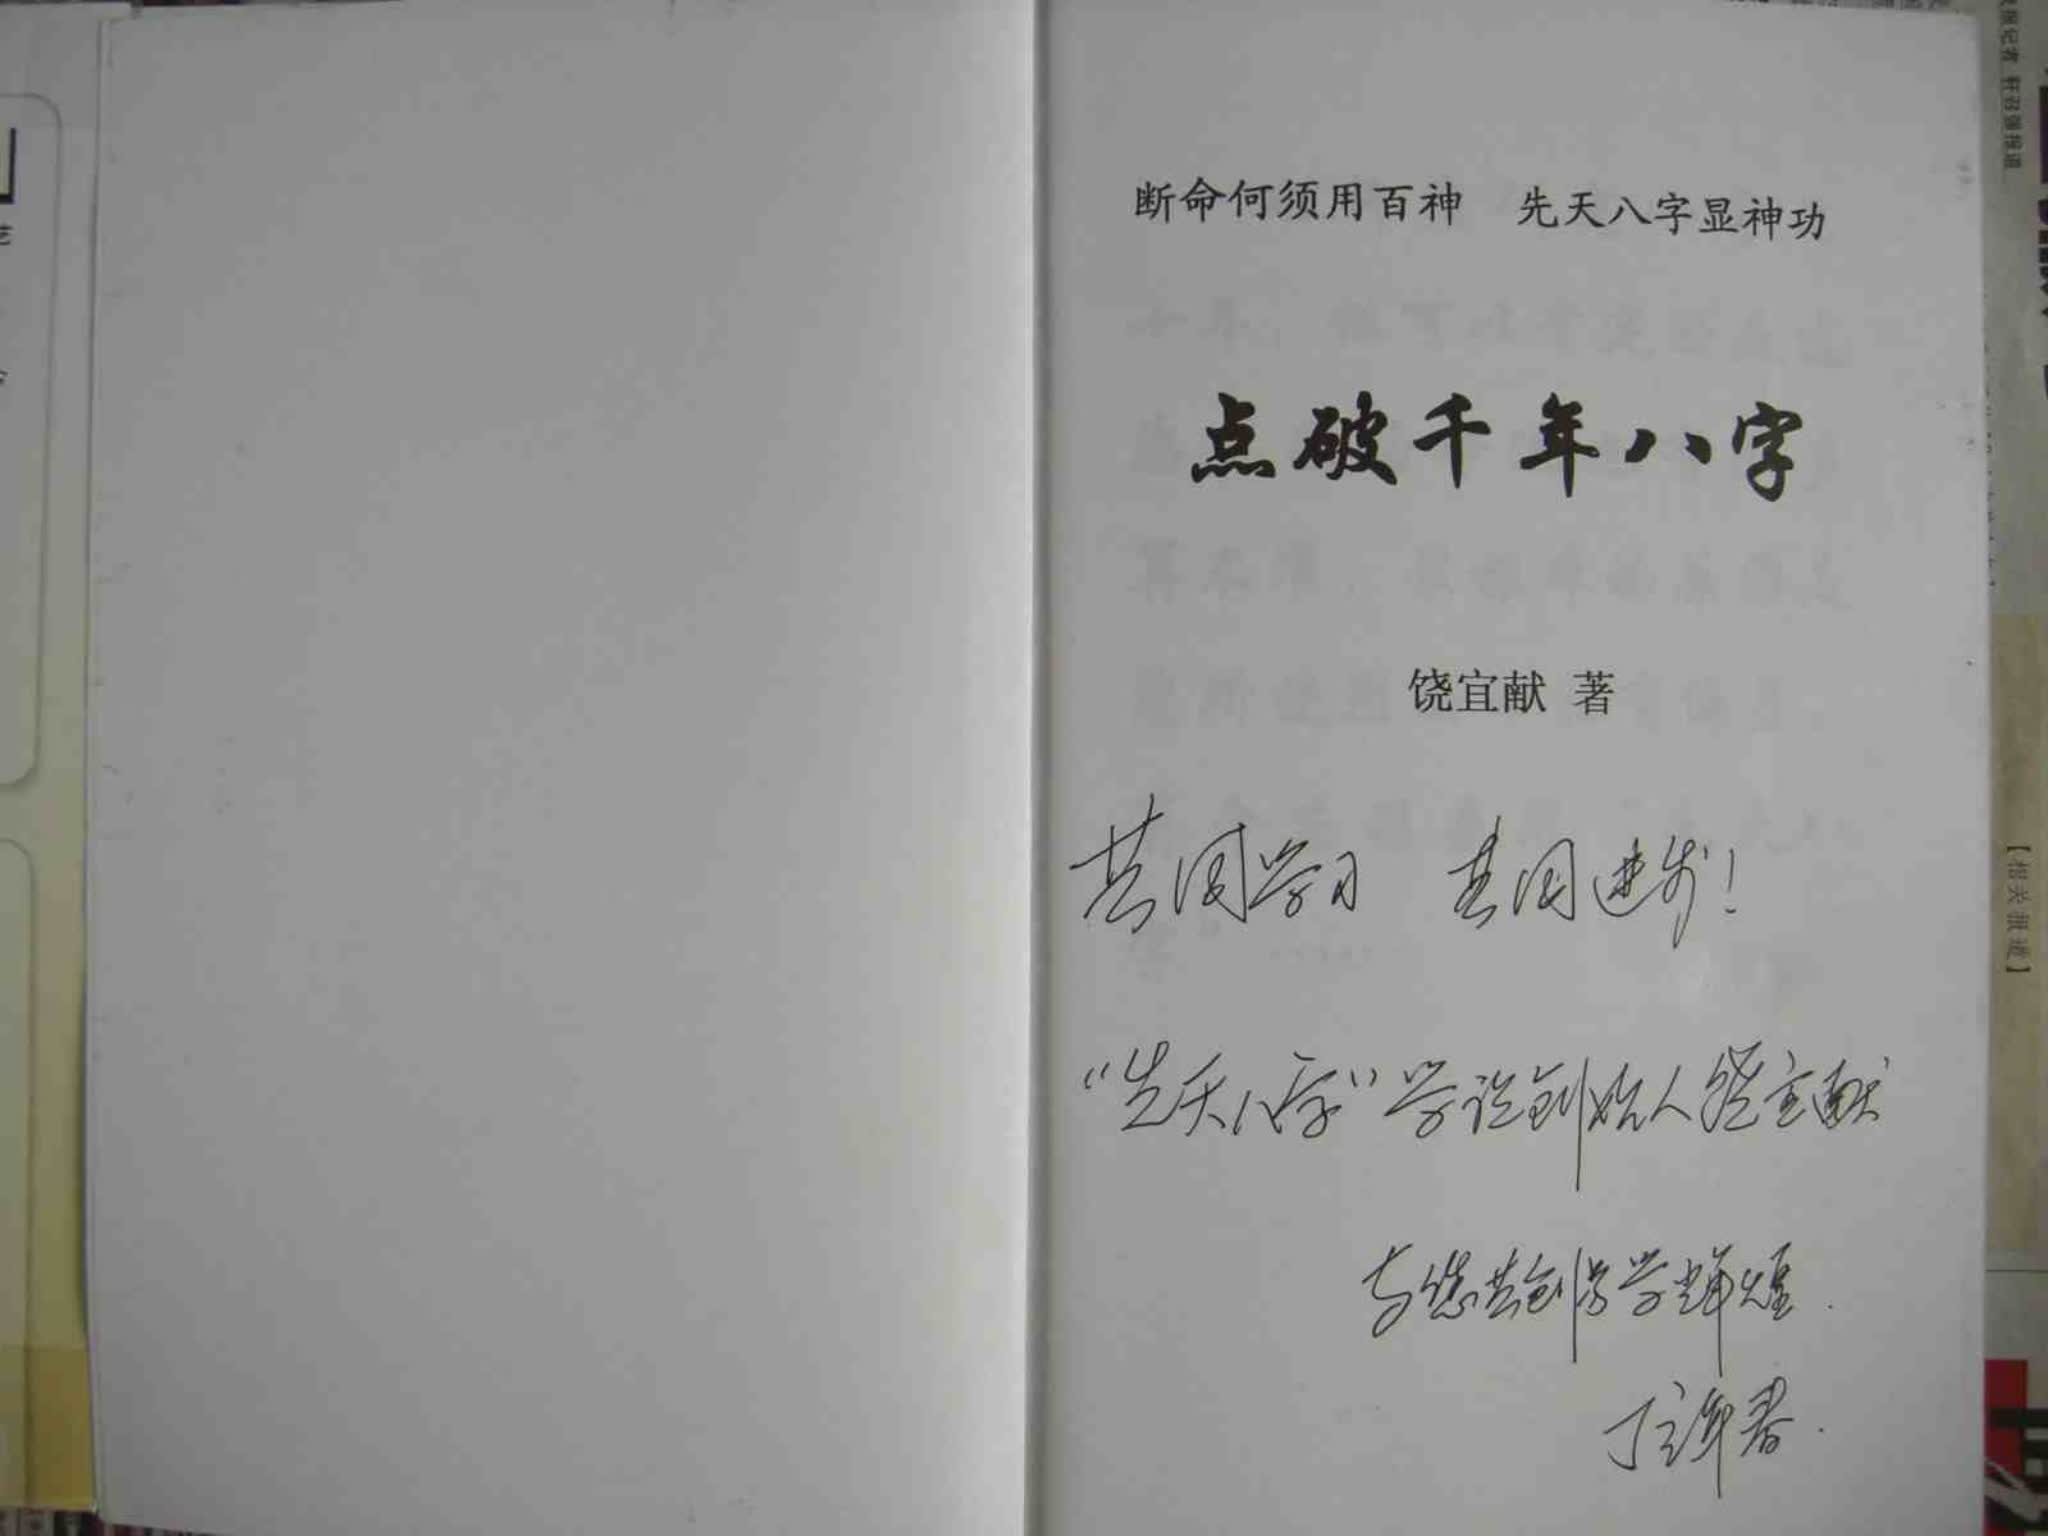 断命何须用百神 先天八字显神功
点破千年八字
饶宜献 著
共同学习 共同进步!
“先天八字”学说创始人饶宜献
与您共创易学辉煌.
丁亥年春.
【相关报道】